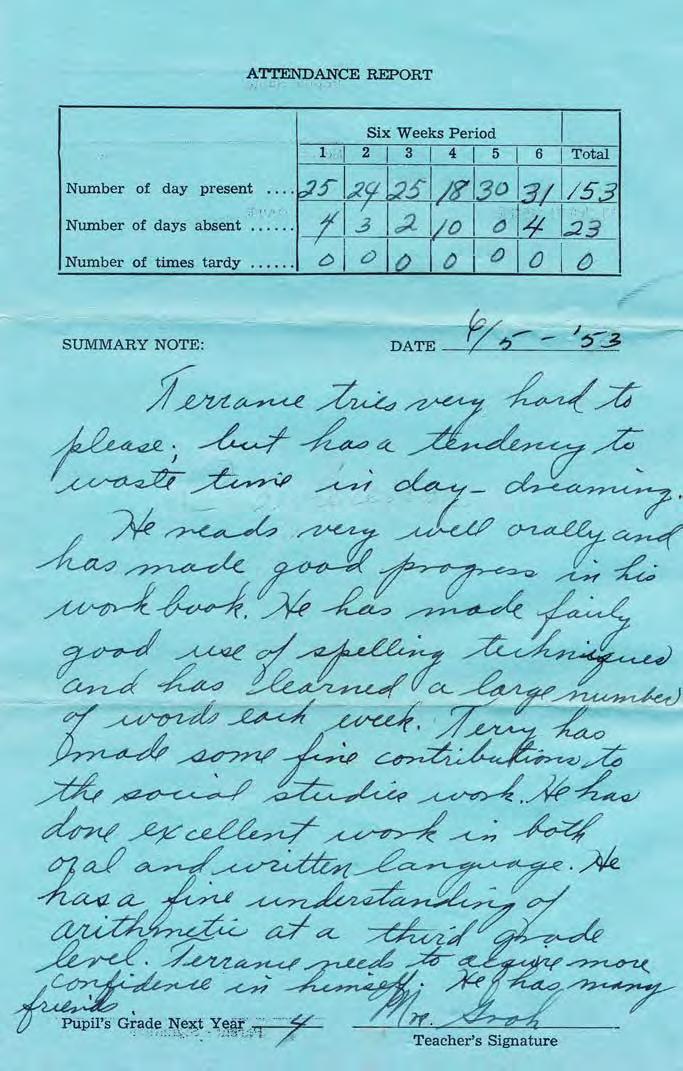 ATTENDANCE REPORT
Six Weeks Period
1 2 3 4 5 6 Total
Number of day present .... 25 24 25 18 30 31 153
Number of days absent ...... 4 3 2 10 0 4 23
Number of times tardy ...... 0 0 0 0 0 0 0
SUMMARY NOTE: DATE 6/5 - '53
Terrance tries very hard to
please; but has a tendency to
waste time in day-dreaming.
He reads very well orally and
has made good progress in his
work book. He has made fairly
good use of spelling techniques
and has learned a large number
of words each week. Terry has
made some fine contributions to
the social studies work. He has
done excellent work in both
oral and written language. He
has a fine understanding of
arithmetic at a third grade
level. Terrance needs to acqure more
confidence in himself. He has many
friends.
Pupil's Grade Next Year 4 Mrs. Groh
Teacher's Signature